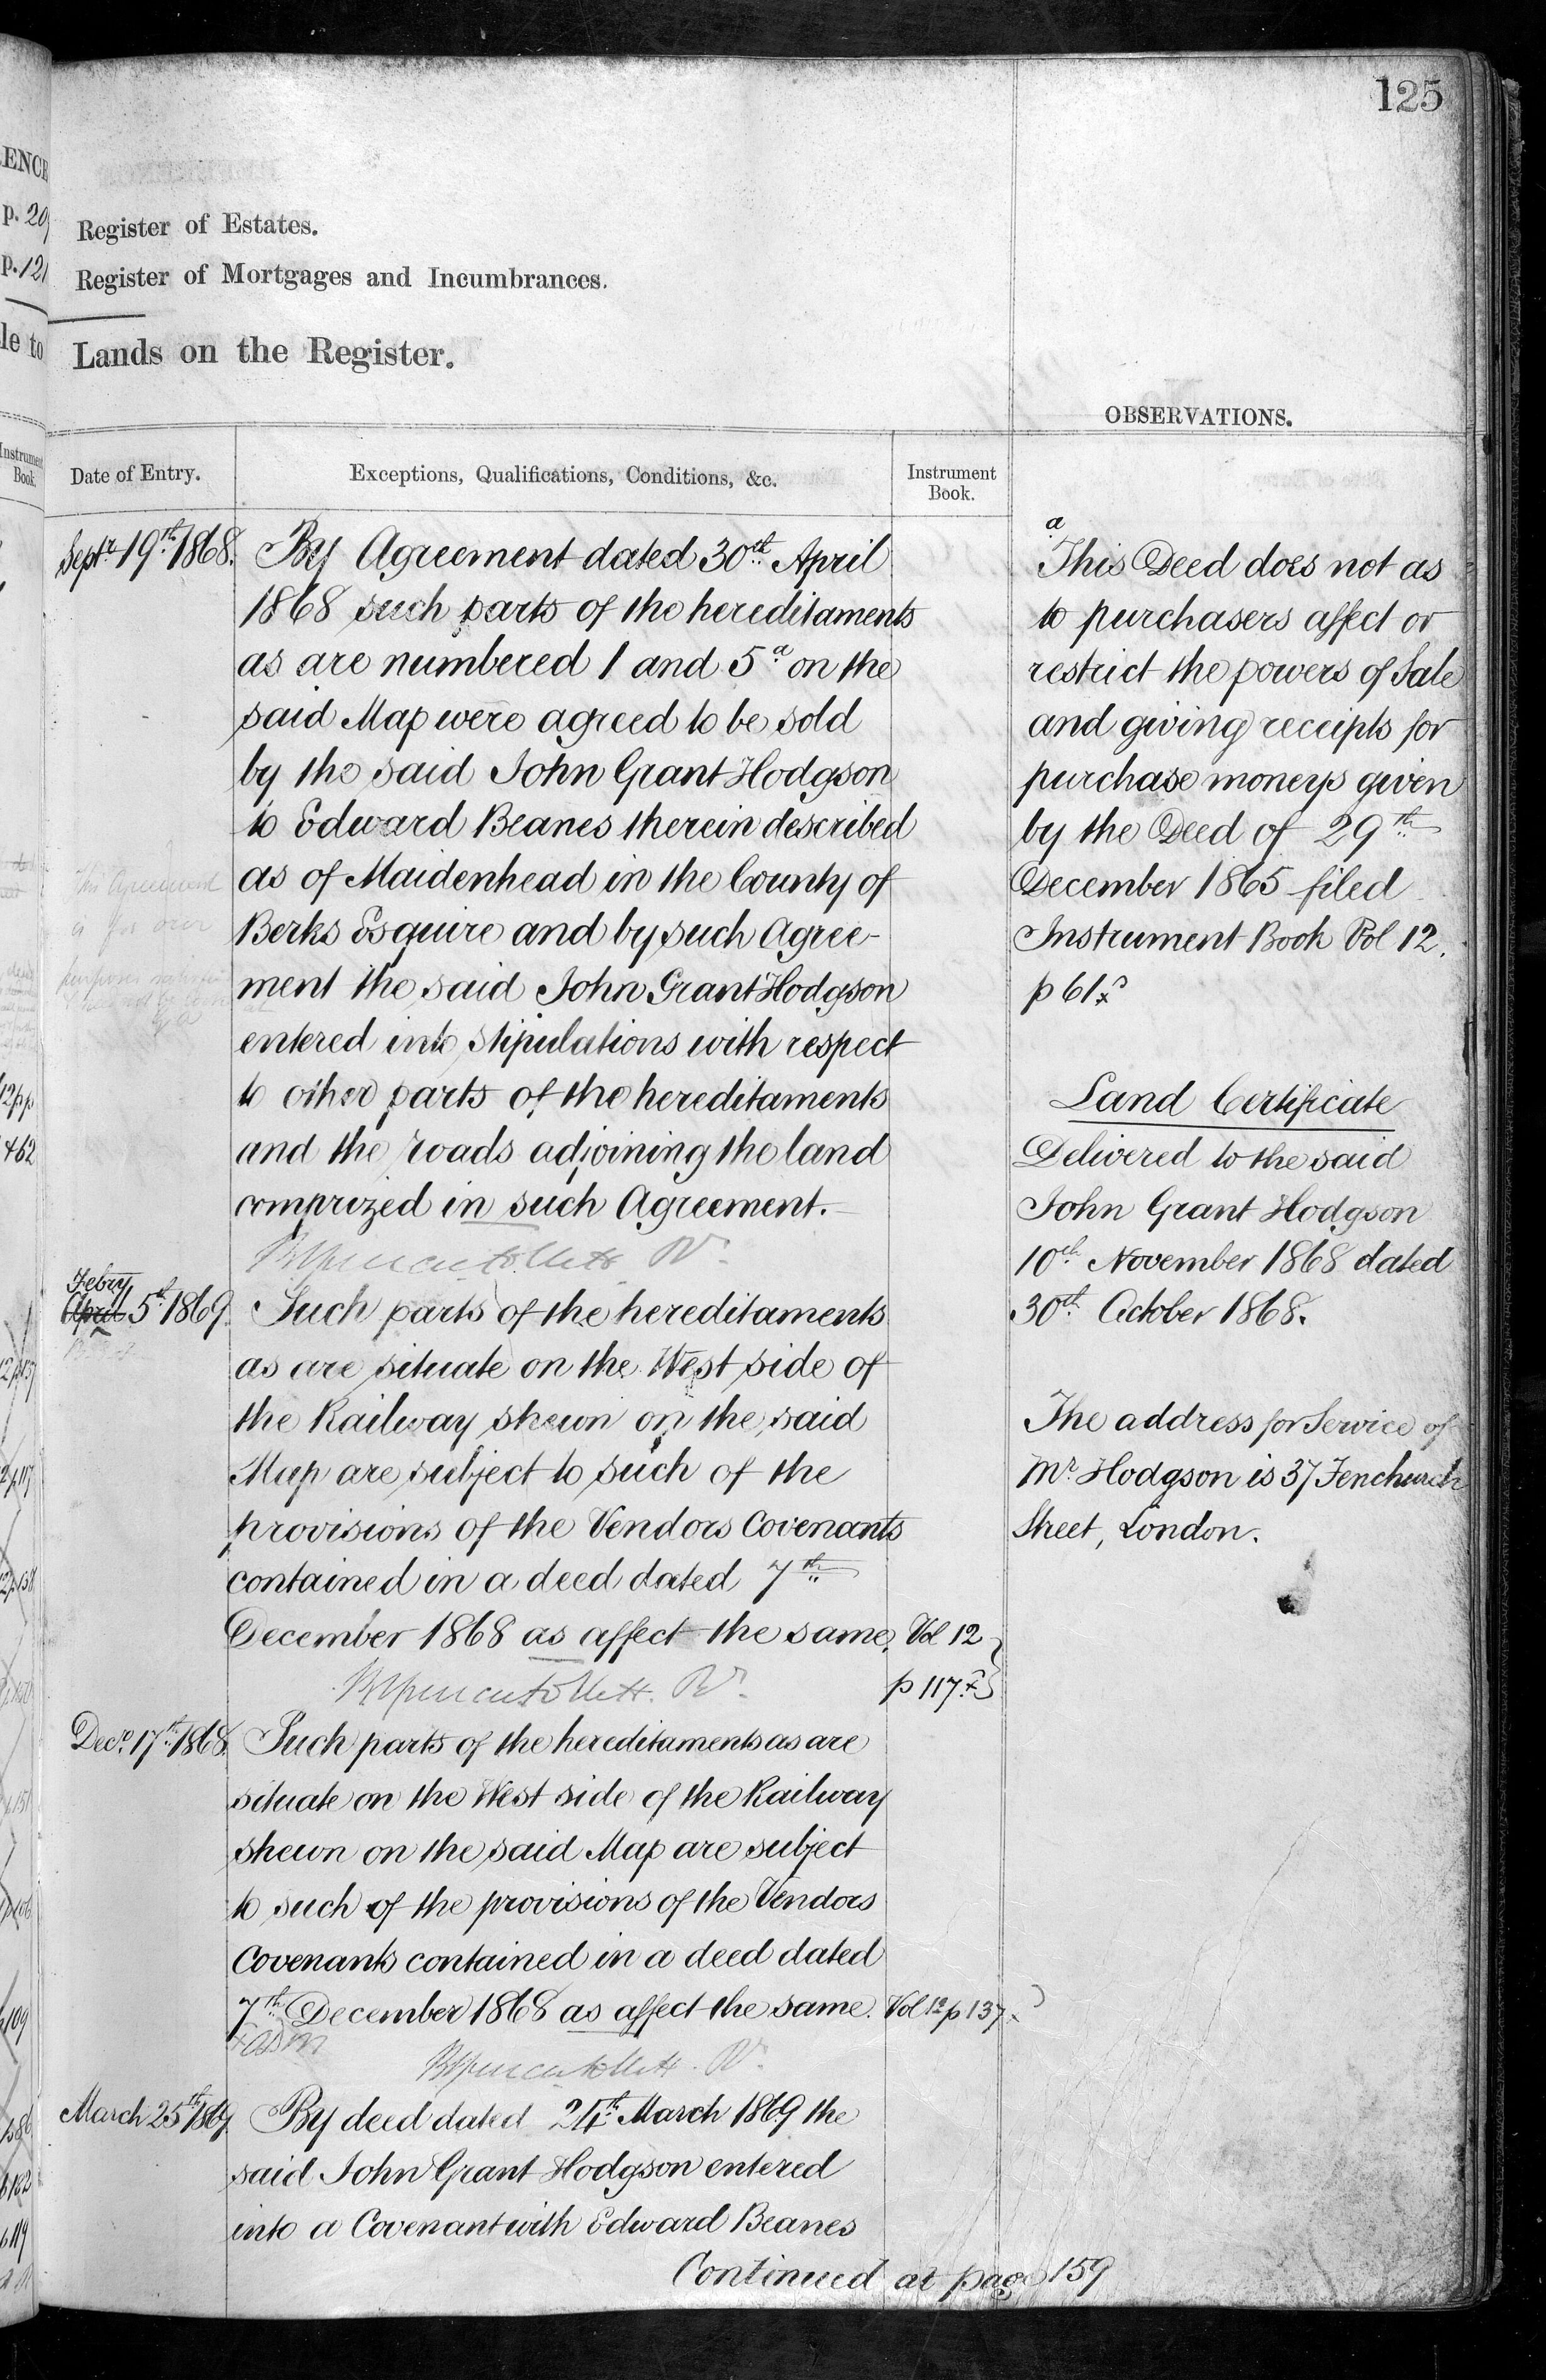 125
Register of Estates.
Register of Mortgages and Incumbrances.
Lands on the Register.
OBSERVATIONS.
Date of Entry.
Exceptions, Qualifications, Conditions, &c.
Instrument
Book.
Septr 19th 1868.
By Agreement dated 30th April
1868 such parts of the hereditaments
as are numbered 1 and 5a on the
said Map were agreed to be sold
by the said John Grant Hodgson
to Edward Beanes therein described
as of Maidenhead in the County of
Berks Esquire and by such Agree-
ment the said John Grant Hodgson
entered into stipulations with respect
to other parts of the hereditaments
and the roads adjoining the land
comprized in such Agreement.
Febry
April 5th 1869.
Such parts of the hereditaments
as are situate on the West side of
the Railway shewn on the said
Map are subject to such of the
provisions of the Vendors Covenants
contained in a deed dated 7th
December 1868 as affect the same.
Vol 12
p 117
Decr. 17th 1868.
Such parts of the hereditaments as are
situate on the West side of the Railway
shewn on the said Map are subject
to such of the provisions of the Vendors
Covenants contained in a deed dated
7th December 1868 as affect the same.
Vol 12 p 137
March 25th 1869.
By deed dated 24th March 1869 the
said John Grant Hodgson entered
into a Covenant with Edward Beanes
Continued at page 159
a
This Deed does not as
to purchasers affect or
restrict the powers of Sale
and giving receipts for
purchase moneys given
by the Deed of 29th
December 1865 filed
Instrument Book Vol 12.
p 61
Land Certificate
Delivered to the said
John Grant Hodgson
10th November 1868 dated
30th October 1868.
The address for Service of
Mr. Hodgson is 37 Fenchurch
Street, London.